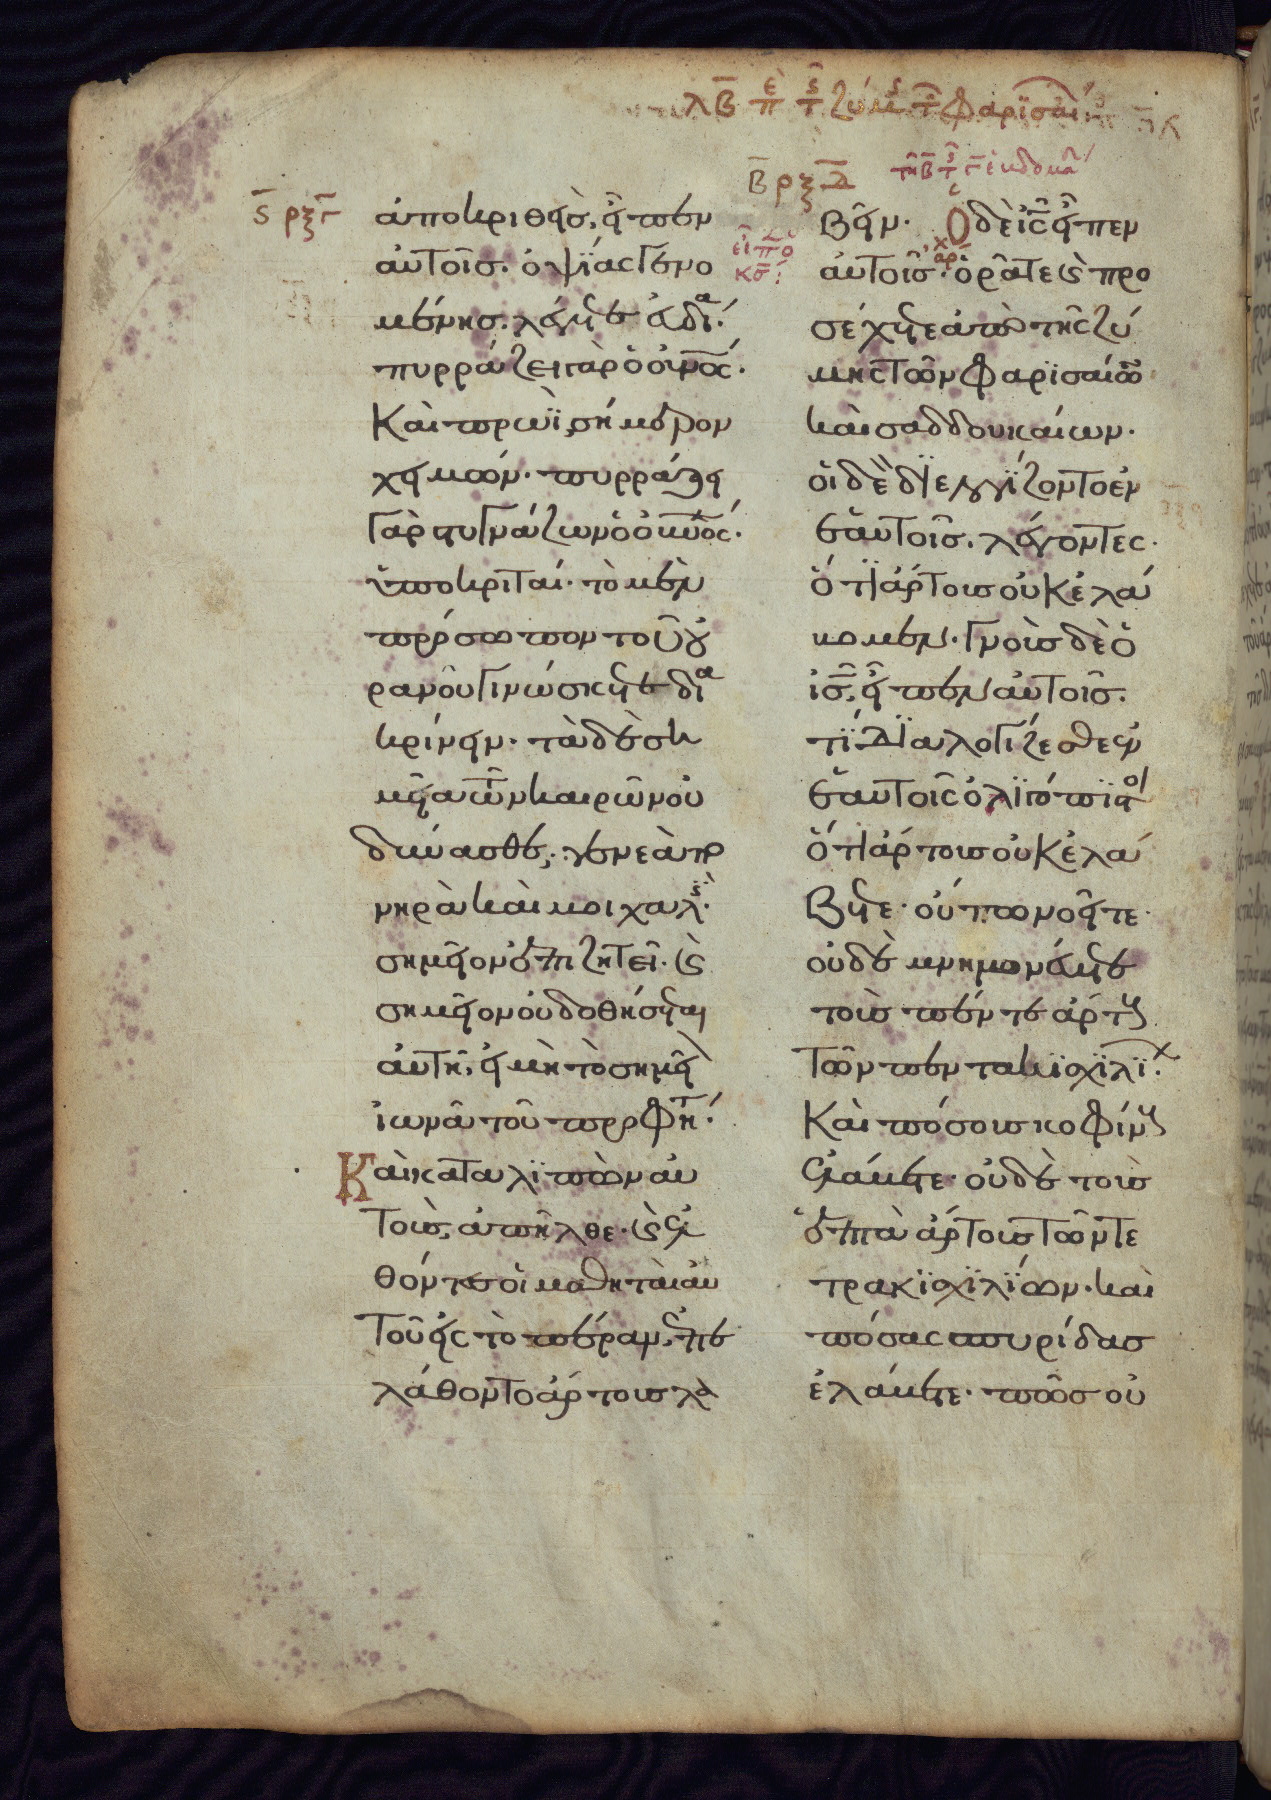 λβ περὶ τῆς ζύμης τῶν φαρισαί
Β ρξδ
τῇ β τῆς ϛ ἑβδομά
ϛ ρξγ
εἶπεν ὁ
κς
ἀποκριθεὶς, εἶπεν
αὐτοῖς. ὀψΐας γενο
μένης. λέγετε εὐδία.
πυρράζει γὰρ ὁ οὐνος.
Καὶ πρωΐ, σήμερον
χειμών. πυρράζει
γὰρ στυγνάζων ὁ οὐνος.
ὑποκριταί. τὸ μὲν
πρόσωπον τοῦ οὐ
ρανοῦ γινώσκετε δια
κρίνειν. τὰ δὲ ση
μεῖα τῶν καιρῶν οὐ
δύνασθε, γενεὰ πο
νηρὰ καὶ μοιχαλὶς.
σημεῖον ἐπιζητεῖ. καὶ
σημεῖον οὐ δοθήσεται
αὐτῇ, εἰ μὴ τὸ σημεῖον
ἰωνᾶ τοῦ προφήτου.
Καὶ καταλϊπὼν αὐ
τοὺς, ἀπῆλθε. καὶ ἐλ
θόντες οἱ μαθηταὶ αὐ
τοῦ εἰς τὸ πέραν, ἐπε
λάθοντο ἄρτους λα
βεῖν. Ὁ δὲ ις εἶπεν
αὐτοῖς. ὁρᾶτε καὶ προ
σέχετε ἀπὸ τῆς ζύ
μης τῶν φαρϊσαίων
καὶ σαδδουκαίων.
οἱ δὲ δϊελογΐζοντο ἐν
ἑαυτοῖς. λέγοντες.
ὅτι ἄρτους οὐκ ἐλά
βομεν. γνοὺς δὲ ὁ
ις, εἶπεν αὐτοῖς.
τΐ δϊαλογίζεσθε ἐν
ἑαυτοῖς ὀλϊγόπϊστοι
ὅτι ἄρτους οὐκ ἐλά
βετε. οὔπω νοεῖτε.
οὐδὲ μνημονεύετε
τοὺς πέντε ἄρτους
τῶν πεντακϊσχϊλΐων.
Καὶ πόσους κοφίνους
ἐλάβετε. οὐδὲ τοὺς
ἑπτὰ ἄρτους τῶν τε
τρακϊσχϊλΐων. καὶ
πόσας σπυρίδας
ἐλάβετε. πῶς οὐ